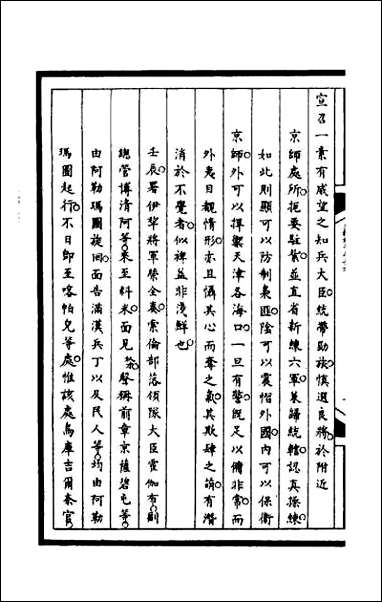 宣召一素有威望之知兵大臣統帶勁旅慎選良將於附近
京師處所扼要駐紮並直省新練六軍兼歸統轄認真操練
如此則顯可以防制梟匪陰可以震慴外國內可以保衛
京師外可以捍禦天津各海口一旦有警旣足以備非常而
外夷目覩情形亦且懾其心而奪之氣其欺肆之萌有潛
消於不覺者似裨益非淺鮮也
壬辰署伊犂將軍榮全奏索倫部落領隊大臣霍伽有副
總管博清阿等來至科米面見榮全聲稱前章京薩碧屯等
由阿勒瑪圖旋回面告滿漢兵丁以及民人等均由阿勒
瑪圖起行不日卽至喀帕兒等處惟該處烏庫吉爾泰官